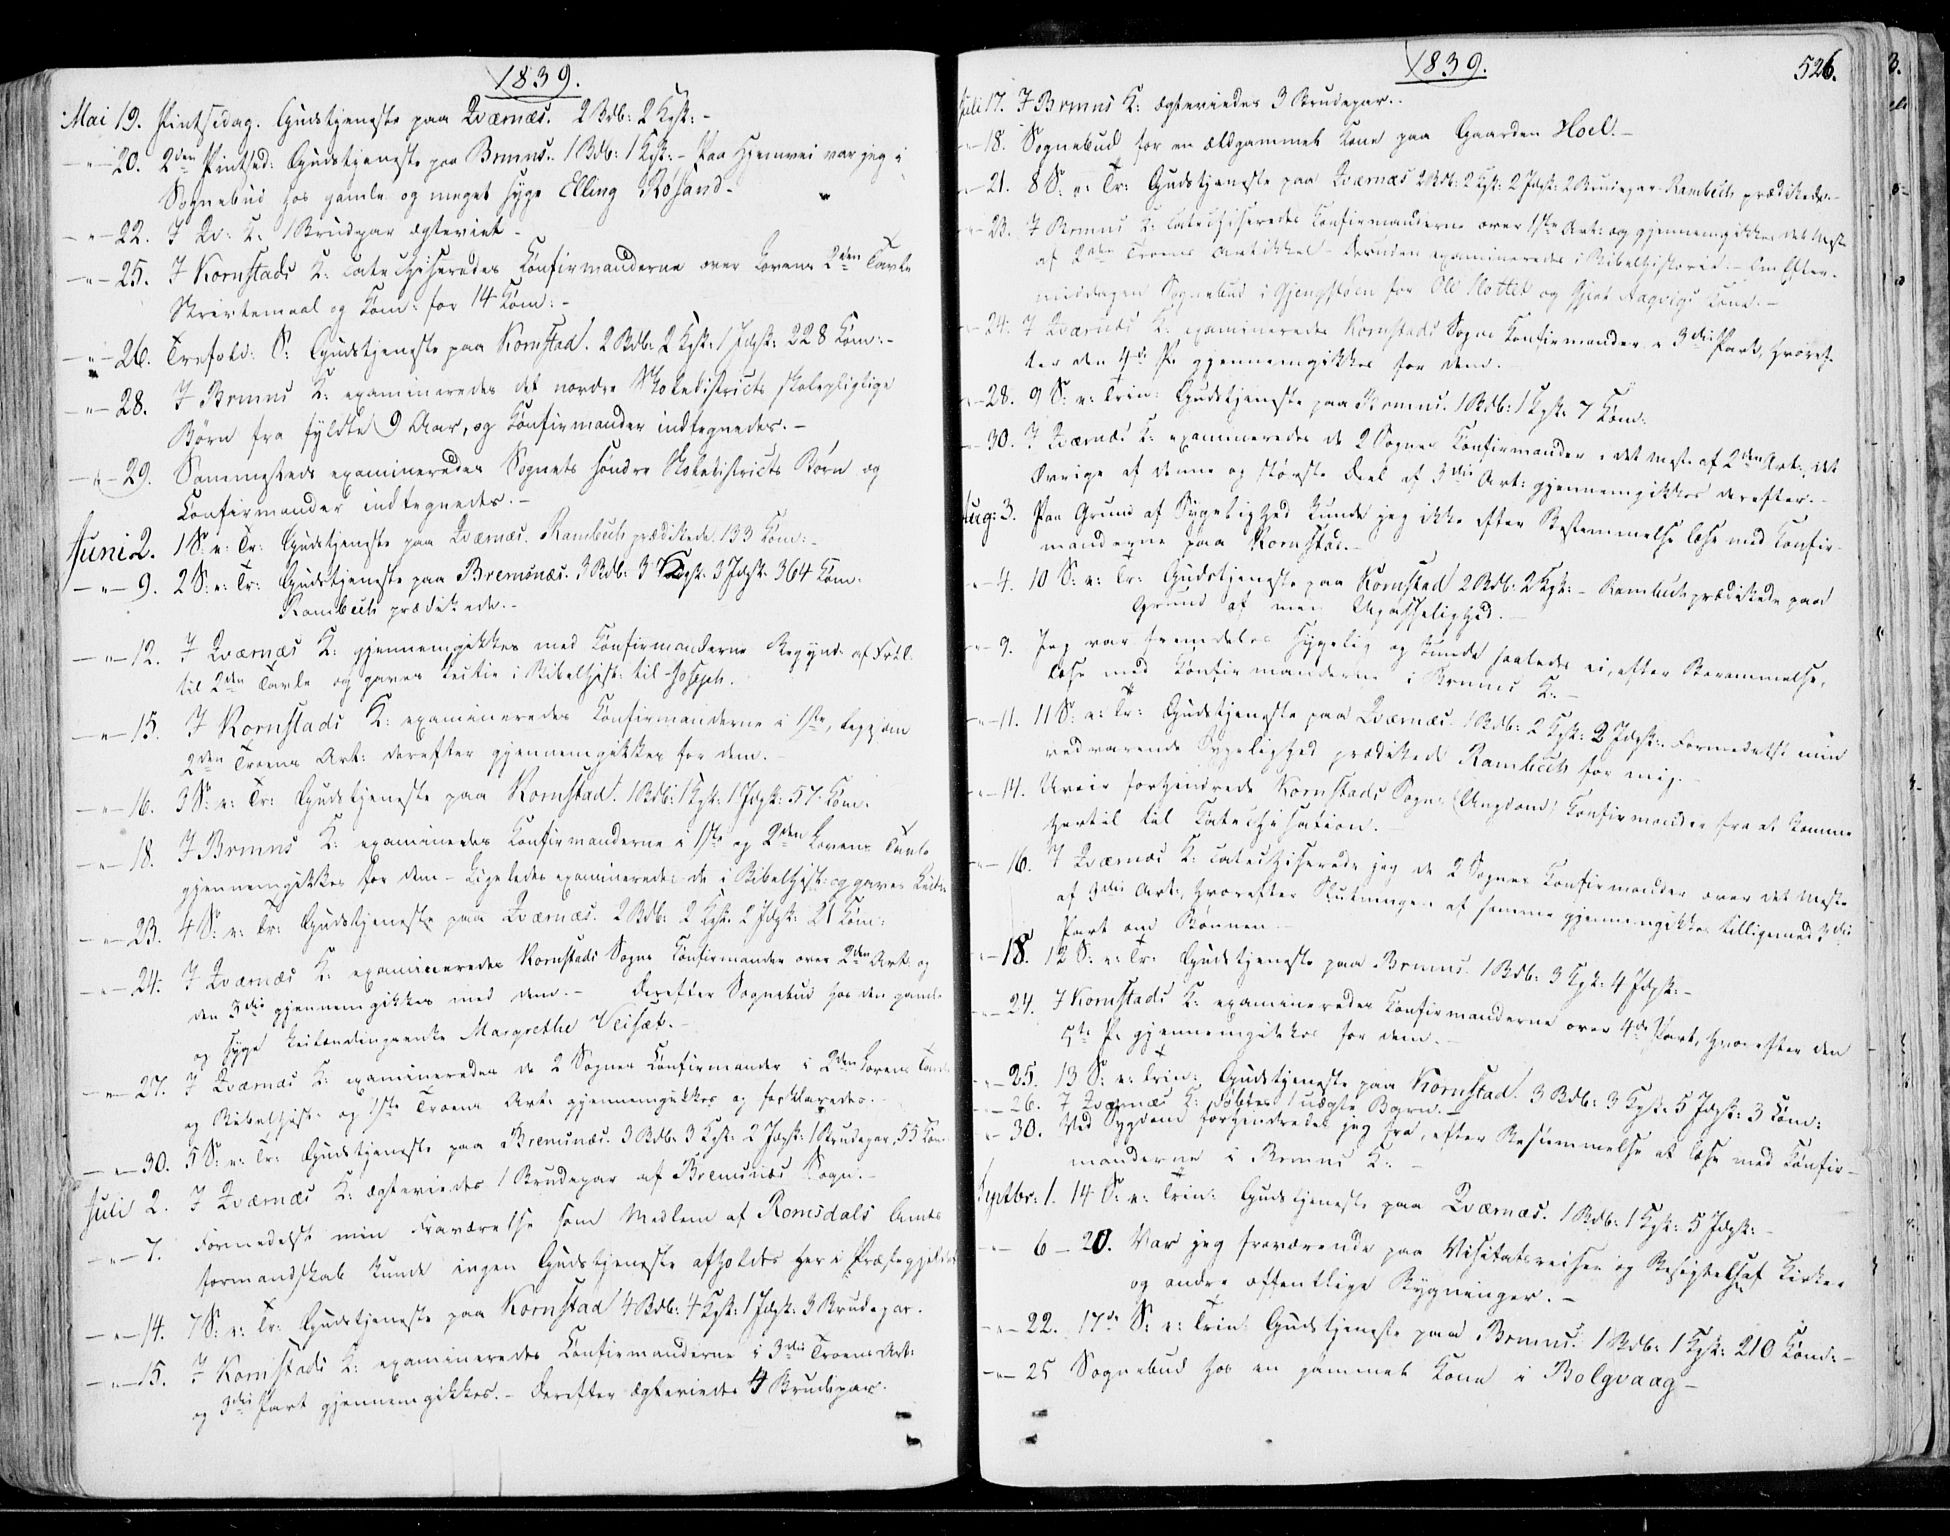 1839.
Mai 19. Pintsedag. Gudstjeneste paa Qværnæs. 2 Bdb: 2 Kgk: -
- " - 20. 2den Pintsed: Gudstjeneste paa Bremns. 1 Bdb: 1 Kgk: - Paa Hjemvei var jeg i
Sognebud hos gamle og meget syge Elling Rosand. -
- " - 22. I Qv: K: 1 Brudpar ægteviet -
- " - 25. I Kornstads K: catechiseredes Confirmanderne over Lovens 2den Tavle
Skriftemaal og Com: for 14 Com: -
- " - 26. Trefold: S: Gudstjeneste paa Kornstad. 2 Bdb: 2 Kgk: 1 Jdgk: 228 Com: -
- " - 28. I Bremns K: examineredes det nordre Skoledistricts skolepligtige
Børn fra fyldte 9 Aar, og Confirmander indtegnedes. -
- " - 29. Sammesteds examineredes Sognets søndre Skoledistricts Børn og
Confirmander indtegnedes. -
Juni 2. 1 S: e: Tr: Gudstjeneste paa Qværnæs. Rambech prædikede. 133 Com: -
- " - 9. 2 S: e: Tr: Gudstjeneste paa Bremsnæs. 3 Bdb: 3 Kgk: 3 Jdgk: 364 Com:
Rambech prædikede. -
- " - 12. I Qværnæs K: gjennemgikkes med Confirmanderne Begynd: af Frkl:
til 2den Tavle og gaves Lectie i Bibelhist: til Joseph.
- " - 15. I Kornstads K: examineredes Confirmanderne i 1ste, ligesom
2den Troens Art: derefter gjennemgikkes for dem.
- " - 16. 3 S: e: Tr: Gudstjeneste paa Kornstad. 1 Bdb: 1 Kgk: 1 Jdgk: 57 Com.
- " - 18. I Bremns K: examineredes Confirmanderne i 1ste og 2den Lovens Tavle
gjennemgikkes for dem - Ligeledes examineredes de i Bibelhist: og gaves Lectie
- " - 23. 4 S: e: Tr: Gudstjeneste paa Qværnæs. 2 Bdb: 2 Kgk: 2 Jdgk: 21 Com:
- " - 24. I Qværnæs K: examineredes Kornstads Sogns Confirmander over 2den Art. og
den 3die gjennemgikkes med dem. - Derefter Sognebud hos den gamle
og syge Margrethe Veisæt. -
- " - 27. I Qværnæs K: examineredes de 2 Sognes Confirmander i 2den Lovens Tavle
og Bibelhist: og 1ste Troens Art: gjennemgikkes og forklaredes. -
- " - 30. 5 S: e: Tr: Gudstjeneste paa Bremsnæs. 3 Bdb: 3 Kgk: 2 Jdgk: 1 Brudepar, 55 Com
Juli 2. I Qværnæs K: ægteviedes 1 Brudepar af Bremsnæs Sogn. -
- " - 7. Formedelst min Fraværelse som Medlem af Romsdals Amts
formandskab kunde ingen Gudstjeneste afholdes her i Præstegjeldet
- " - 14. 7 S: e: Tr: Gudstjeneste paa Kornstad 4 Bdb: 4 Kgk: 1 Jdgk: 3 Brudepar.
- " - 15. I Kornstads K: examineredes Confirmanderne i 3die Troens Art:
og 3die Part gjennemgikkes. - Derefter ægteviedes 4 Brudepar.
1839.
526.
Juli 17. I Bremns K: ægteviedes 3 Brudepar. -
- 18. Sognebud for en ældgammel Kone paa Gaarden Hoel. -
- 21. 8 S: e: Tr: Gudstjeneste paa Qværnæs 2 Bdb: 2 Kgk: 2 Jdgk: 2 Brudepar - Rambech prædikede. -
- 23. I Bremns K: catechiserede Confirmanderne over 1ste Art: og gjennemgikkes det meste
af 2den Troens Artikkel - desuden examineredes i Bibelhistorie. - Om Efter-
middagen Sognebud i for Ole og Aagvigs Kone. -
- 24. I Qværnæs K: examineredes Kornstads Sogns Confirmander i 3die Part, hvoref-
ter den 4de P: gjennemgikkes for dem. -
- 28. 9 S: e: Trin: Gudstjeneste paa Bremns. 1 Bdb: 1 Kgk: 7 Com:
- 30. I Qværnæs K: examineredes de 2 Sognes Confirmander i det meste af 2den Art:, det
Øvrige af denne og største Deel af 3die Art: gjennemgikkes derefter. -
Aug: 3. Paa Grund af Sygelighed kunde jeg ikke efter Bestemmelse læse med Confir-
manderne paa Kornstad. -
- 4. 10 S: e: Tr: Gudstjeneste paa Kornstad 2 Bdb: 2 Kgk: - Rambech prædikede paa
Grund af min Upasselighed. -
- 9. Jeg var fremdeles sygelig og kunde saaledes ei, efter Berammelse,
læse med Confirmanderne i Bremns K: -
- 11. 11 S: e: Tr: Gudstjeneste paa Qværnæs. 1 Bdb: 2 Kgk: 2 Jdgk: Formedelst min
vedvarende Sygelighed prædikede Rambech for mig. -
- 14. Uveir forhindrede Kornstads Sogns (Ungdom) Confirmander fra at komme
hertil til Catechisation. -
- 16. I Qværnæs K: catechiserede jeg de 2 Sognes Confirmander over det meste
af 3die Art:, hvorefter Slutningen af samme gjennemgikkes tilligemed 3die
Part om Bønnen -
- 18. 12 S: e: Tr: Gudstjeneste paa Bremns. 1 Bdb: 3 Kgk: 4 Jdgk: -
- 24. I Kornstads K: examineredes Confirmanderne over 4de Part, hvorefter den
5te P: gjennemgikkes for dem. -
- 25. 13 S: e: Trin: Gudstjeneste paa Kornstad. 3 Bdb: 3 Kgk: 5 Jdgk: 3 Com:
- 26. I Qværnæs K: døbtes 1 uægte Barn. -
- 30. Ved Sygdom forhindredes jeg fra, efter Bestemmelse at læse med Confir-
manderne i Bremns K: -
Septbr: 1. 14 S: e: Trin: Gudstjeneste paa Qværnæs. 1 Bdb: 1 Kgk: 5 Jdgk: -
6 - 20. Var jeg fraværende paa Visitatsreisen og Besigtelse af Kirker
og andre offentlige Bygninger. -
- " - 22. 17de S: e: Trin: Gudstjeneste paa Bremns. 1 Bdb: 1 Kgk: 210 Com: -
- " - 25 Sognebud hos en gammel Kone i Bolgvaag -